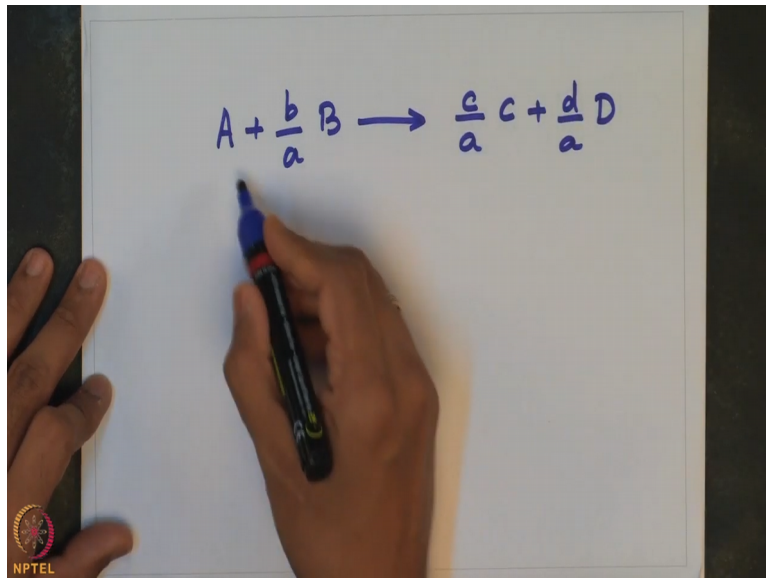 A + b/a B ⟶ c/a C + d/a D
NPTEL